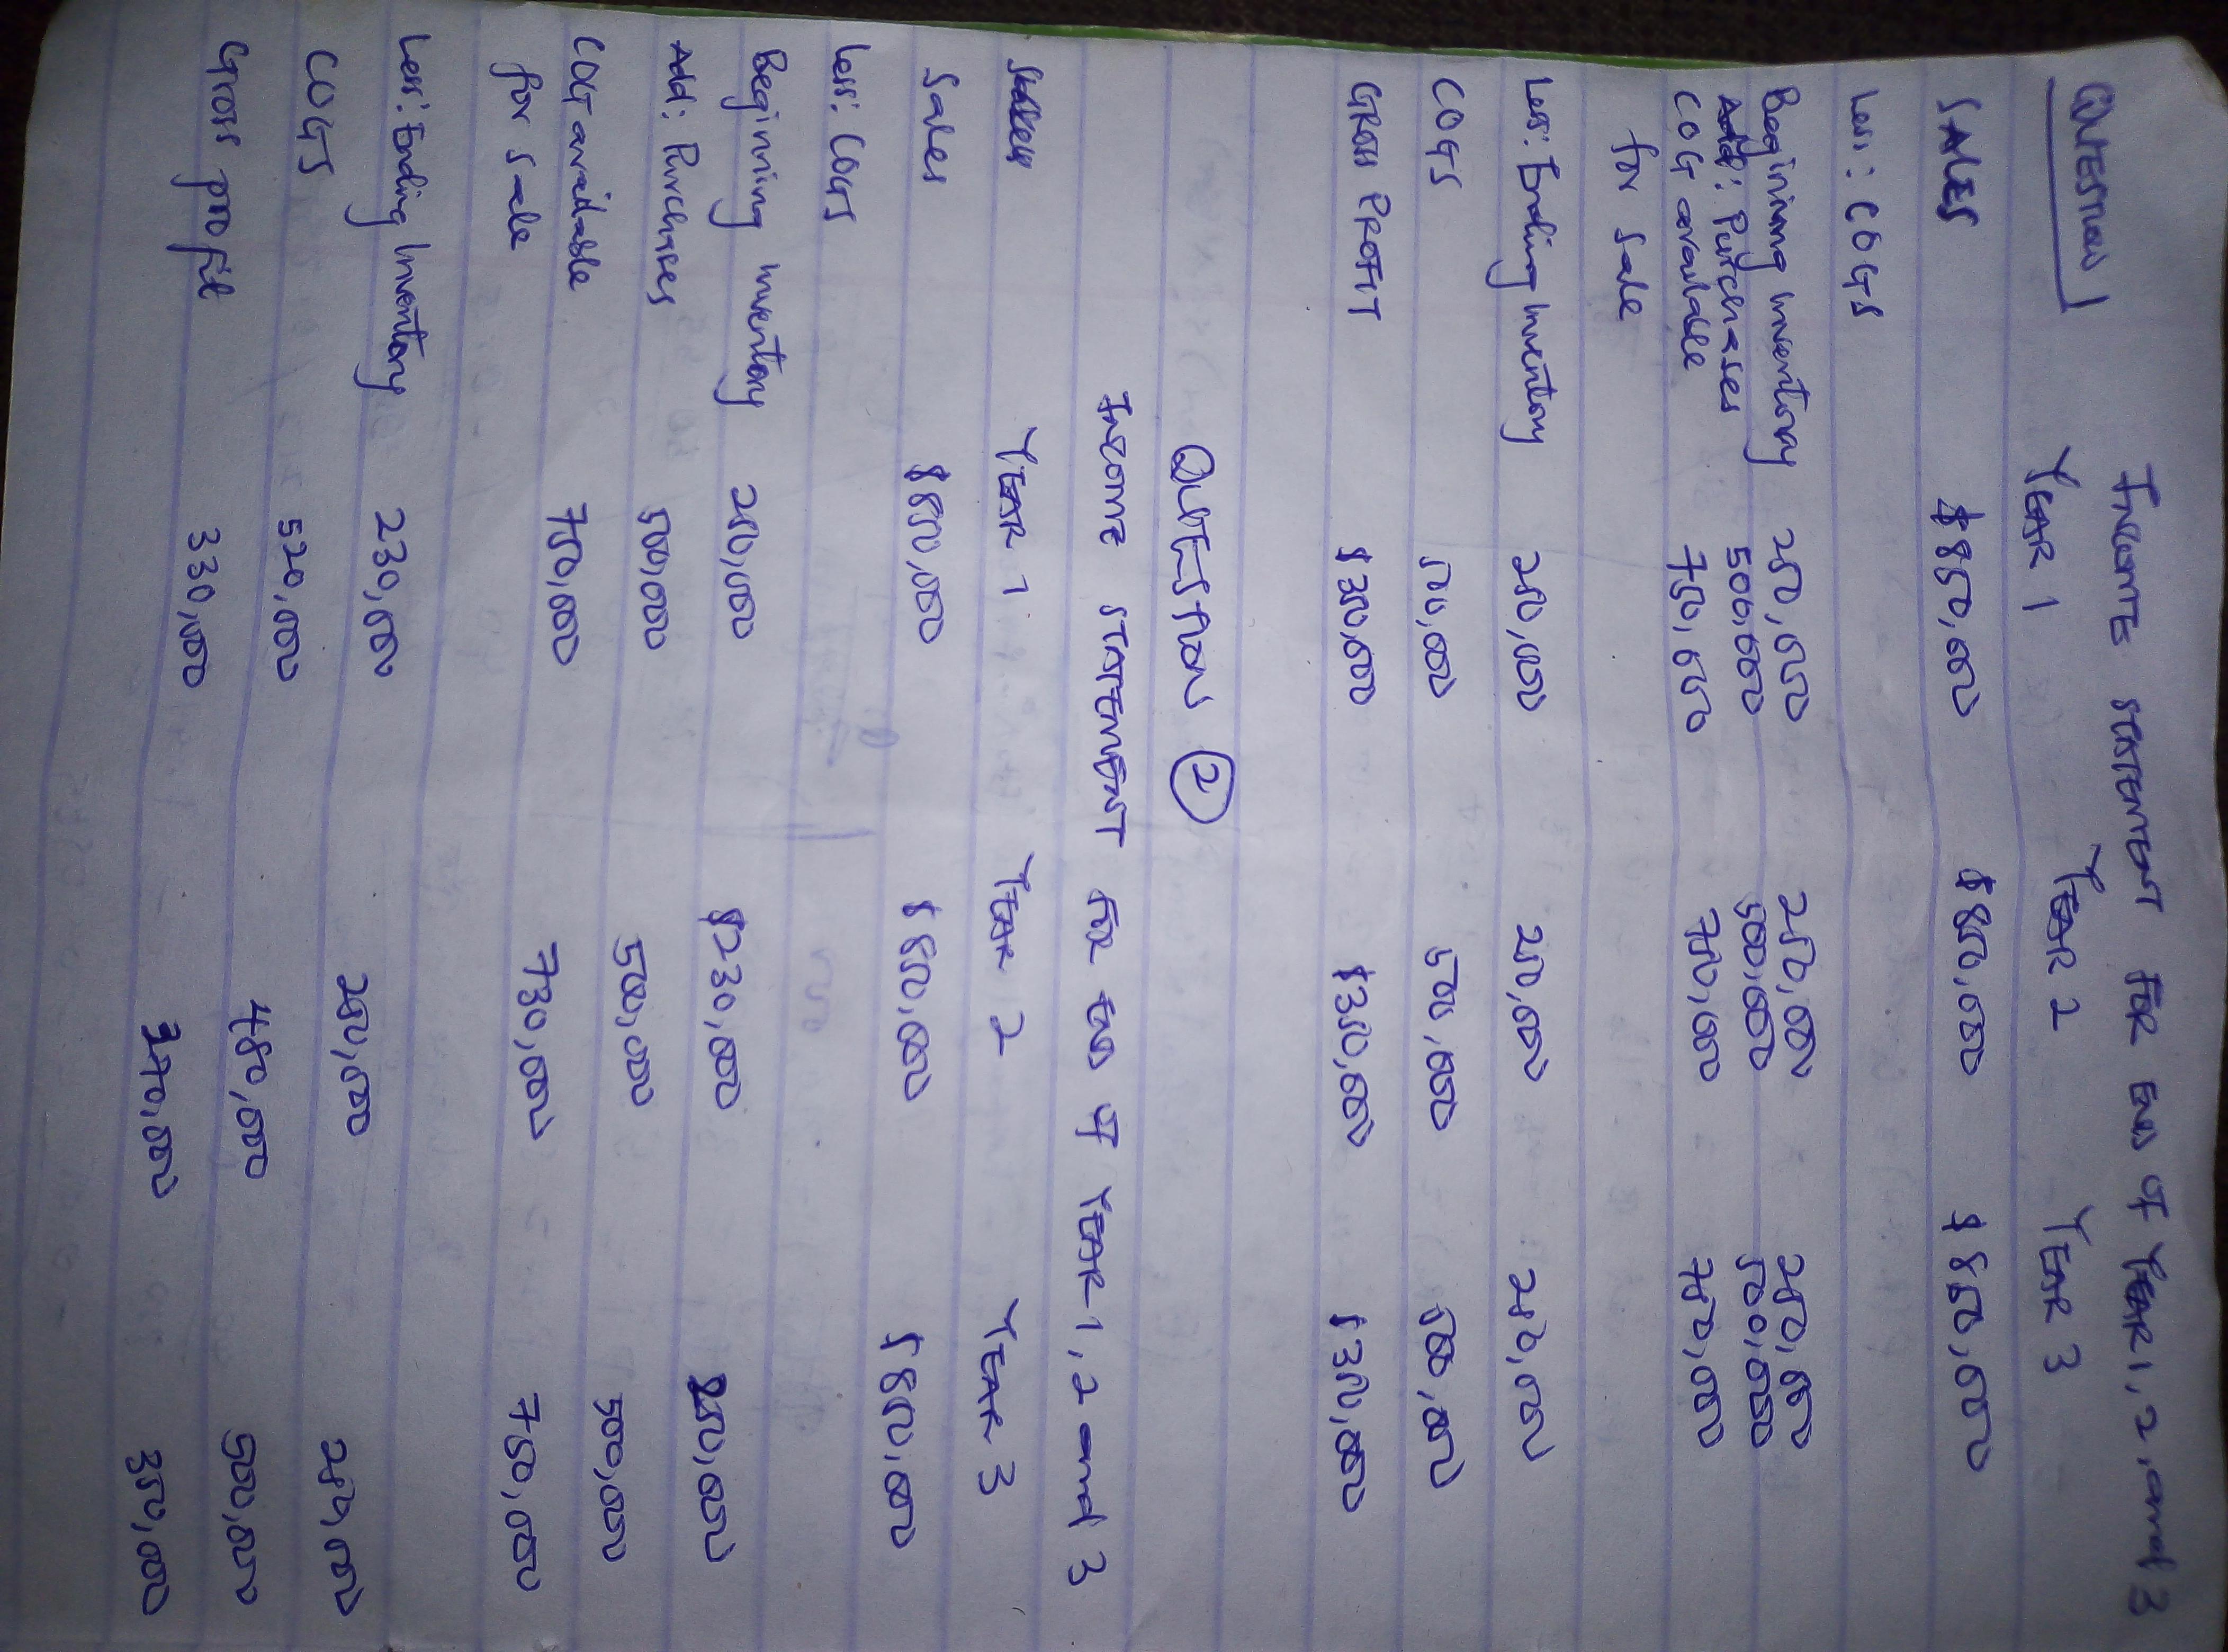 QUESTION 1
INCOME STATEMENT FOR END OF YEAR 1, 2, and 3
YEAR 1 YEAR 2 YEAR 3
SALES $850,000 $850,000 $850,000
Less: COGS
Begining Inventory 250,000 250,000 250,000
Add: Purchases 500,000 500,000 500,000
COG available 750,000 750,000 750,000
for sale
Less: Ending Inventory 250,000 250,000 250,000
COGS 500,000 500,000 500,000
GROSS PROFIT $350,000 $350,000 $350,000
QUESTION 2
INCOME STATEMENT FOR END OF YEAR 1, 2 and 3
YEAR 1 YEAR 2 YEAR 3
Sales $850,000 $850,000 $850,000
Less: COGS
Beginning Inventory 250,000 $230,000 250,000
Add: Purchases 500,000 500,000 500,000
COG available 750,000 730,000 750,000
for sale
Less: Ending Inventory 230,000 250,000 250,000
COGS 520,000 480,000 500,000
Gross profit 330,000 370,000 350,000